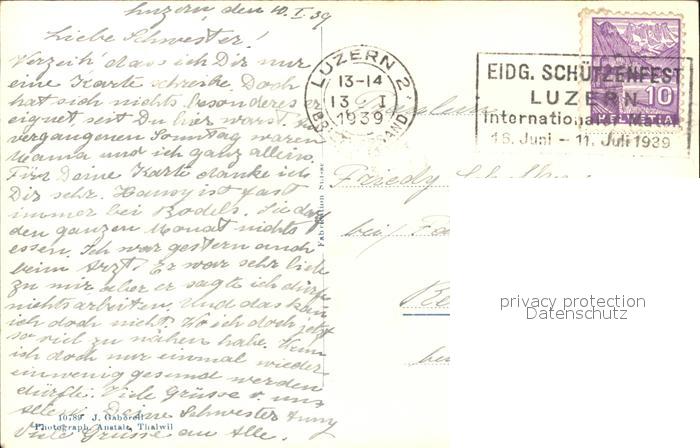 Luzern, den 10. I. 39
Liebe Schwester!
Verzeih' dass ich Dir nur
eine Karte schreibe. Doch
hat sich nichts Besonderes er
eignet seit Du hier warst.
vergangenen Sonntag waren
Mama und ich ganz allein.
Für Deine Karte danke ich
Dir sehr. ist fast
immer bei Sie darf
den ganzen Monat nichts
essen. Ich war gestern auch
beim Arzt. Er war sehr lieb
zu mir aber er sagte ich dürfe
nichts arbeiten. Und das kann
ich doch nicht. Wo ich doch jetzt
so viel zu nähen habe. Wenn
ich doch nur einmal wieder
einwenig gesund werden
dürfte. Viele Grüsse v. uns
allen. Deine Schwester Anny
Viele Grüsse an Alle.
10789 J. Gaberell
Photograph. Anstalt, Thalwil
Fabrikation Suisse
LUZERN 2
13-14
13 I
1939
EIDG. SCHÜTZENFEST
LUZERN
Internationale
16. Juni - 11. Juli 1939
10
HELVETIA
Fräulein
Friedy
bei
privacy protection
Datenschutz